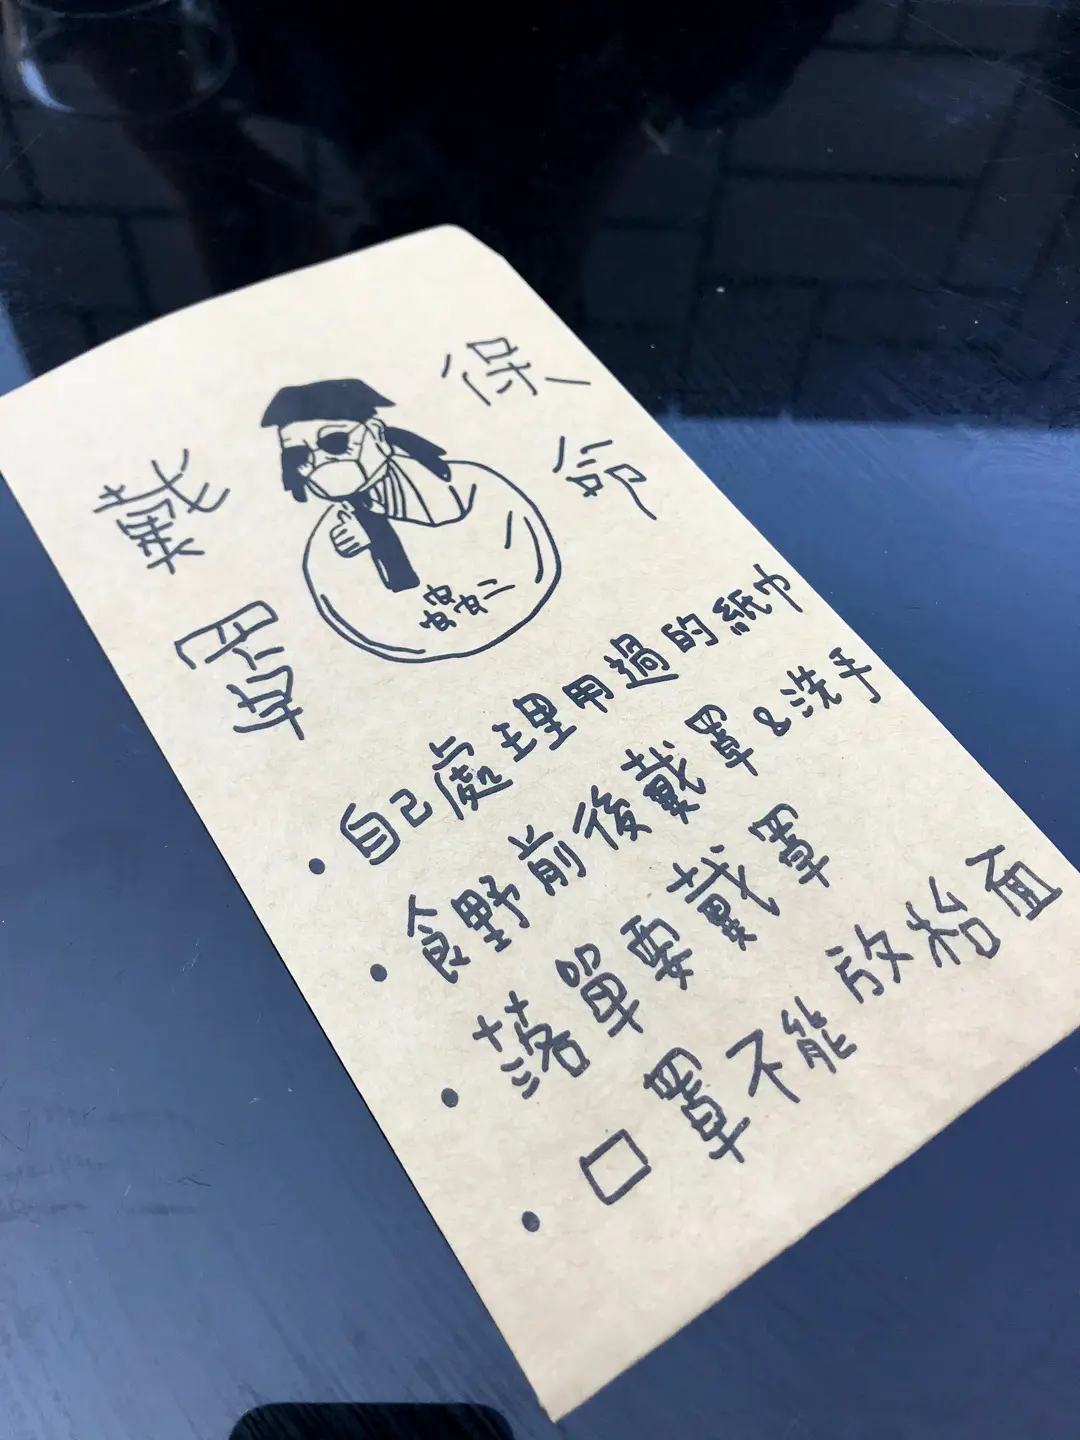 戴罩
保命
蟲二
・自己處理用過的紙巾
・食野前後戴罩&洗手
・落單要戴罩
・口罩不能放枱面